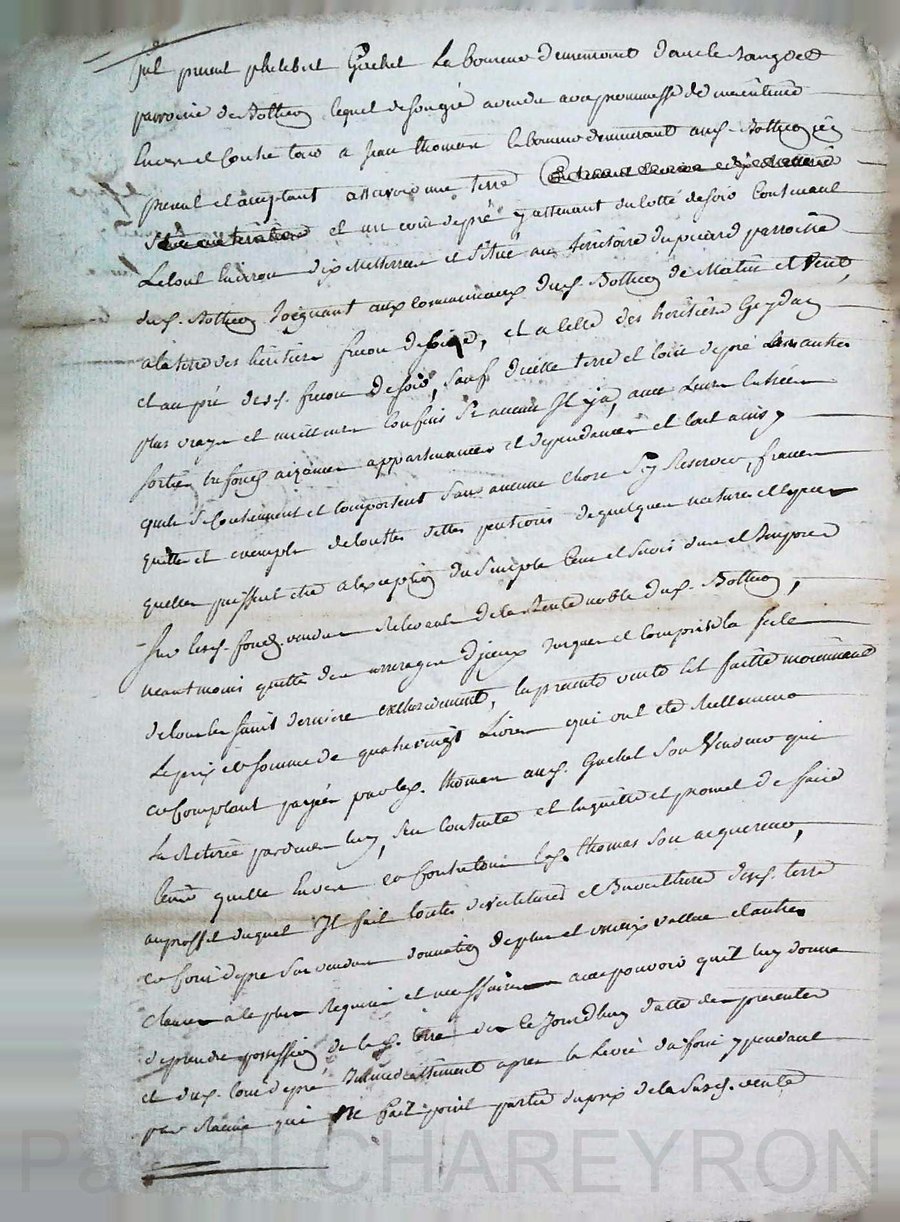 fut présent philibert Gachet laboureur demeurant dans le
parroisse de Bothéon lequel de son gré a vendu avec promesse de maintenir
Envers et Contre tous a Jean thomas laboureur demeurant aud. Bothéon icy
present et acceptant assavoir une terre
et un coin de pré y attenant du cotté de soir Contenant
Le tout Environ dix metterées et situé au territoire du picard parroisse
dud. Bothéon Joignant aux Communaux dud. Bothéon de Matin et Vent,
a la terre des héritiers de soir, et a celle des heritiers
et au pré desd. de soir, sauf dicelle terre et coin de pré autres
plus vrays et meilleurs Confins si aucun Il y a, avec Leurs Entrées
sorties tresfonds aizances appartenances et dependances et tout ainsy
quils se Contiennent et Comportent sans aucune chose s'y Reserver, francs
quittes et exempts de touttes dettes pentions de quelques natures et especes
quelles puissent etre a lexception du simple Cens et servis due et Imposée
sur lesd. fonds vendus Relevant de la Rente noble dud. Bothéon,
neantmoins quitte des arrerages d'jceux Jusques et Compris la fete
de toussaint derniere exclusivement, la presente vente Est faitte moiennant
Le prix et somme de quatrevingt Livres qui ont eté Reellement
et Comptant payées par led. thomas aud. Gachet son Vendeur qui
La Retirée pardevers luy, s'en Contente et En quitte et promet de faire
tenir quitte Envers et Contre tous led. thomas son acquereur,
au proffit duquel Il fait toutes devetitures et Investitures desd. terre
et Coin de pré sus vendus donnation de plus et mieux vallue et autres
Clauses a le plus Requises et necessaires avec pouvoir quil luy donne
de prendre possession de lad. terre des le Jourdhuy datte des presentes
et dud. Coin de pré Immediattement apres la Levée du foin y pendant
par Racine qui Ne fait point partie du prix de la susd. vente
Pascal CHAREYRON